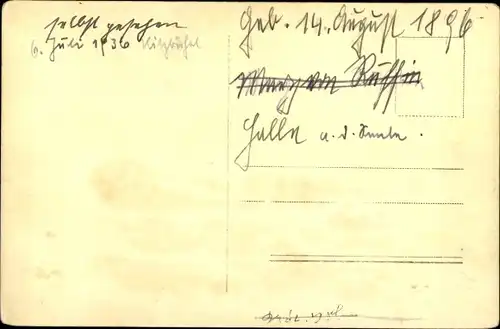 selbst gesehen
6. Juli 1936 Kitzbühel
Geb. 14. August 1896
von Ruffin
Halle a. d. Saale.